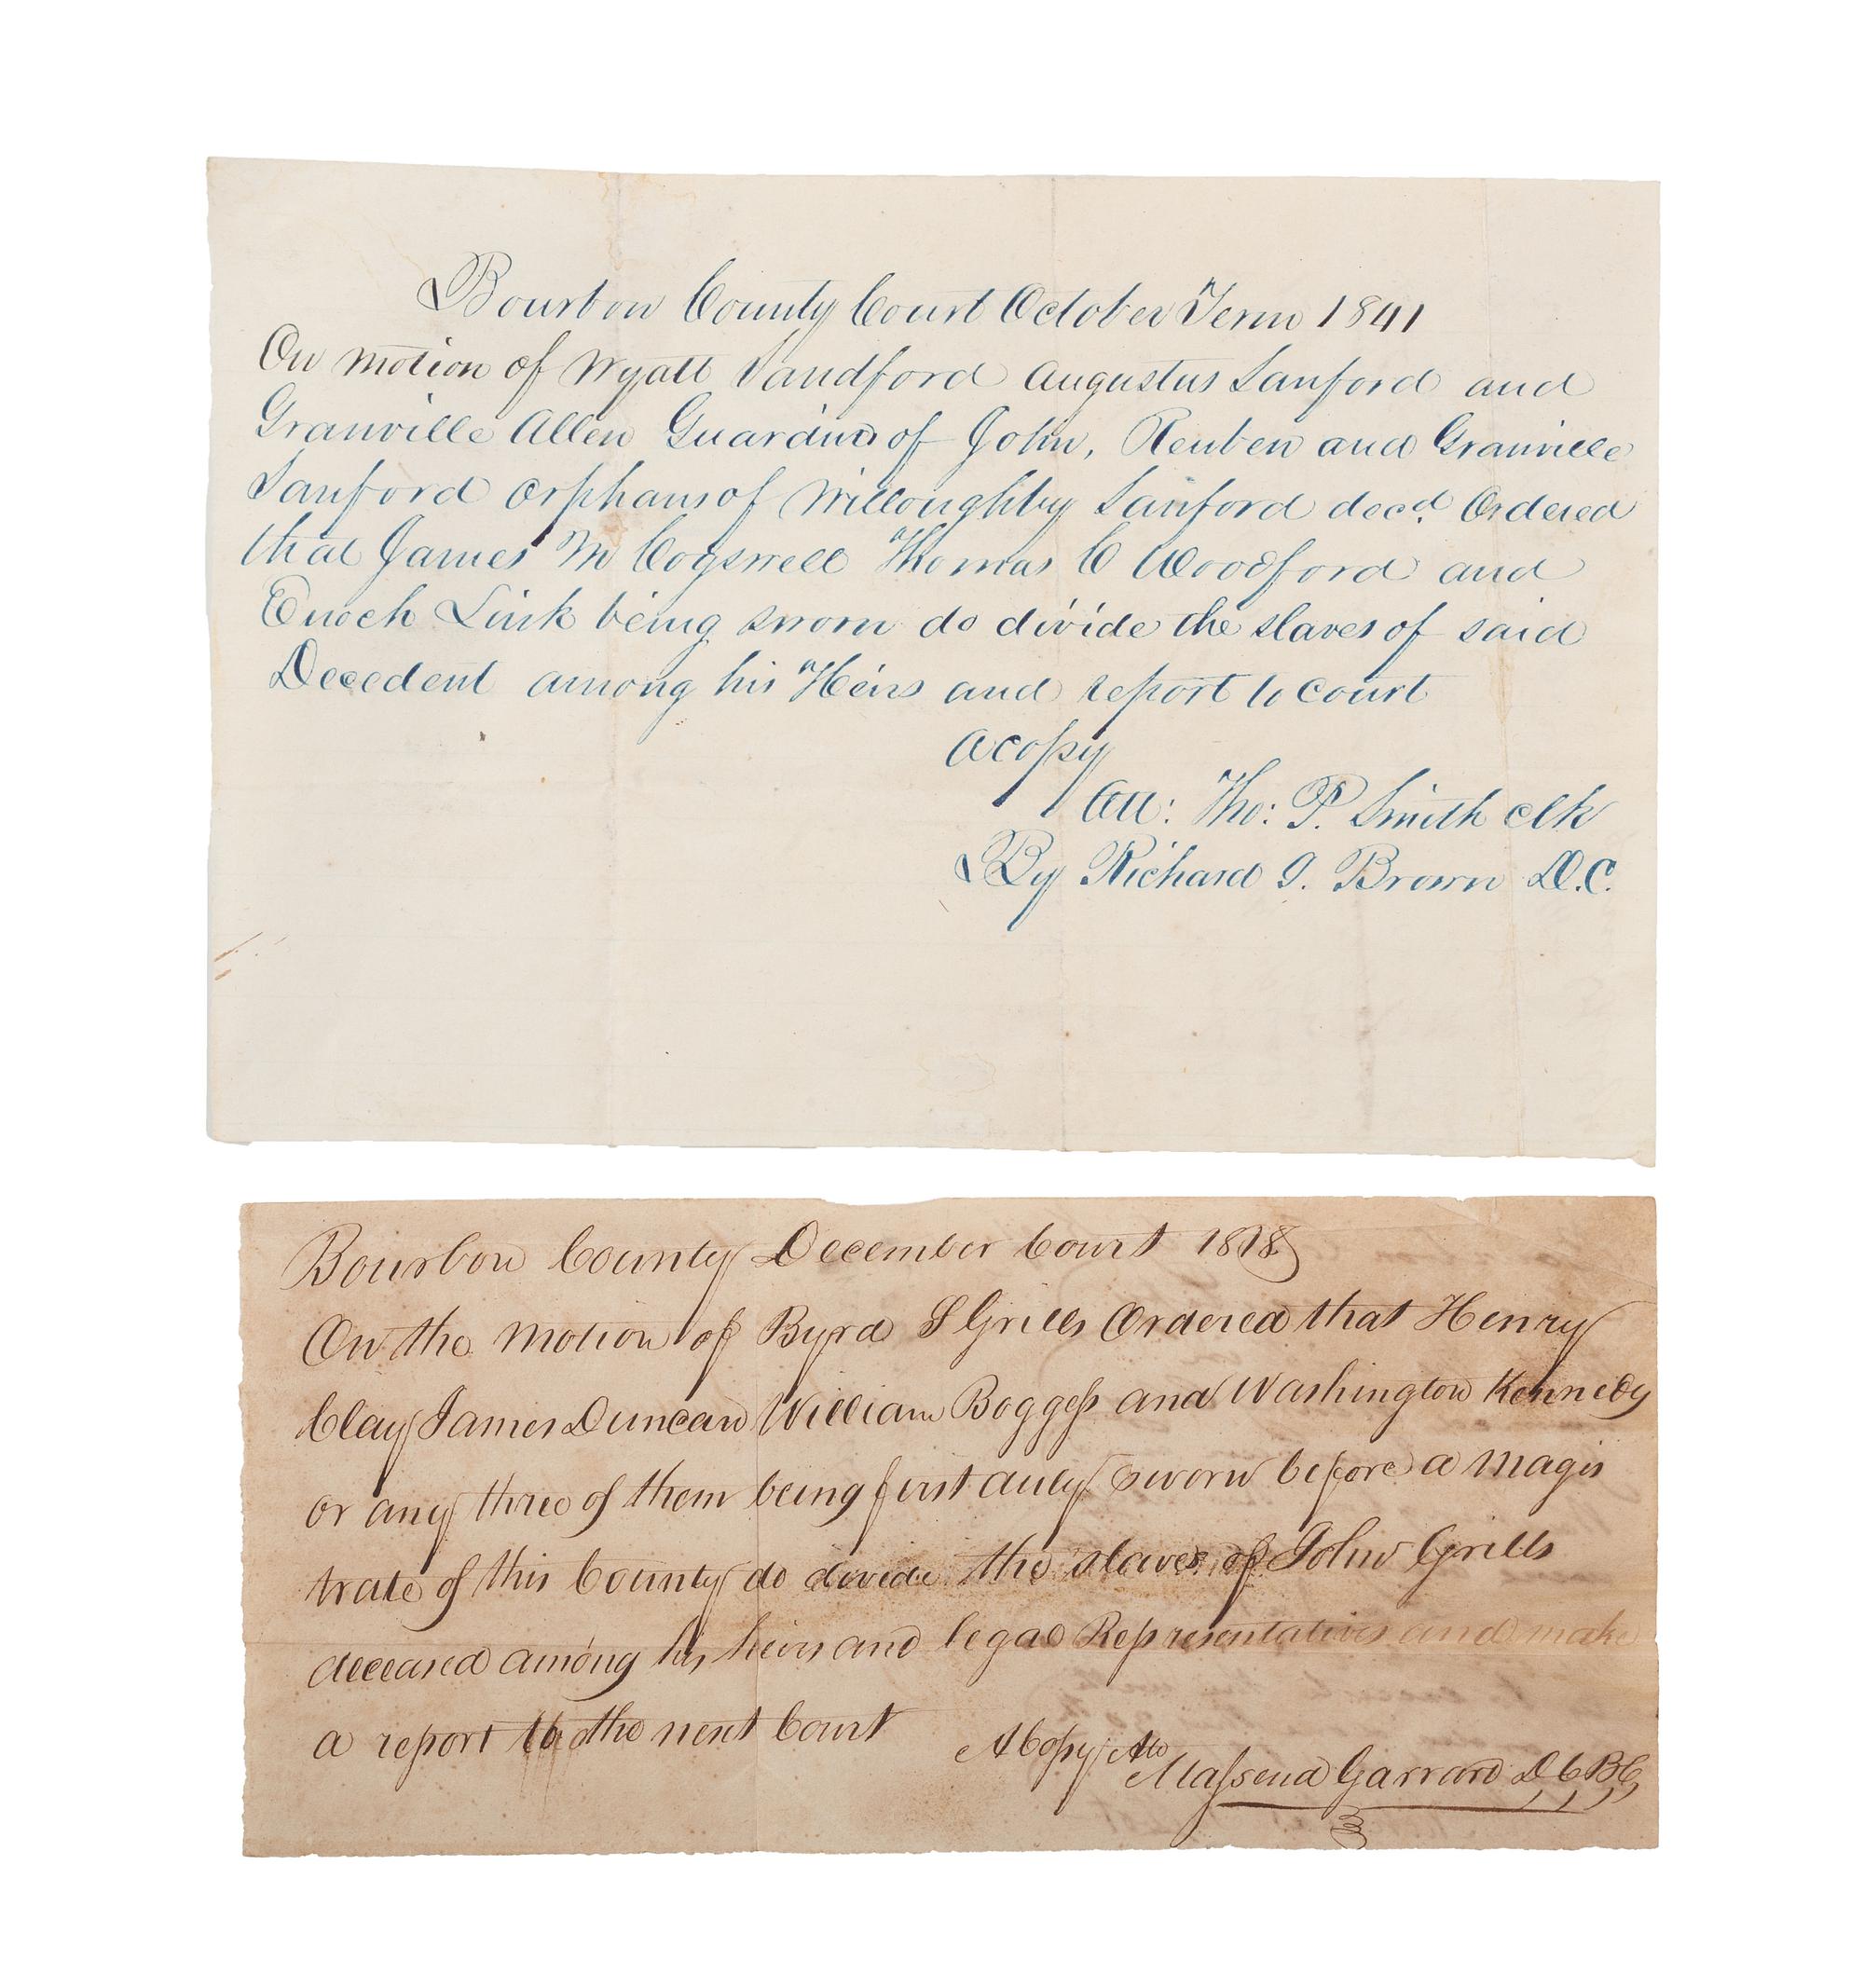 Bourbon County Court October Term 1841
On motion of Wyatt Sandford Augustus Sanford and
Granville Allen Guardian of John, Reuben and Granville
Sanford orphans of Willoughby Sanford decd. Ordered
that James M Cogswell Thomas C Woodford and
Enoch Link being sworn do divide the slaves of said
Decedent among his Heirs and report to court
a copy
Att: Tho: P. Smith clk
By Richard J. Brown D.C.
Bourbon County December Court 1818
On the motion of Byrd S Grills Ordered that Henry
Clay James Duncan William Boggess and Washington Kennedy
or any three of them being first duly sworn before a Magis
trate of this County do divide the slaves of John Grills
deceased among his heirs and legal Representatives and make
a report to the next Court
A Copy Atto
Massena Garrard D,C,B,C,